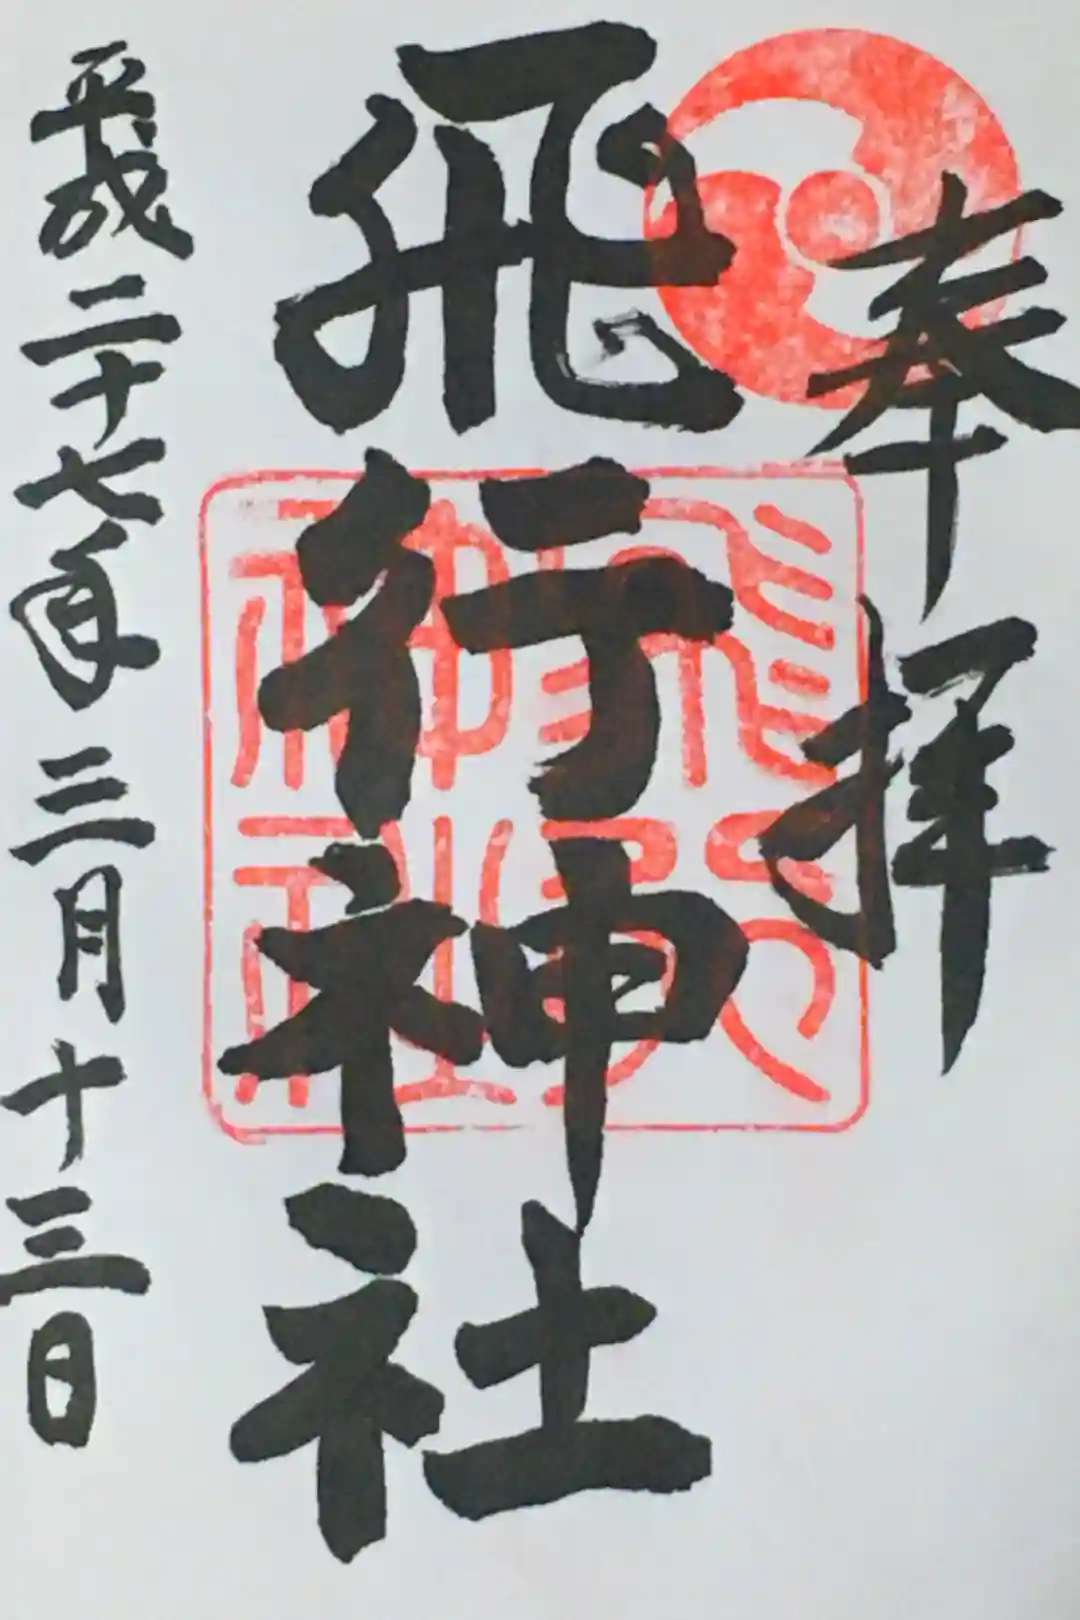 奉拝
飛行神社
平成二十七年三月十三日